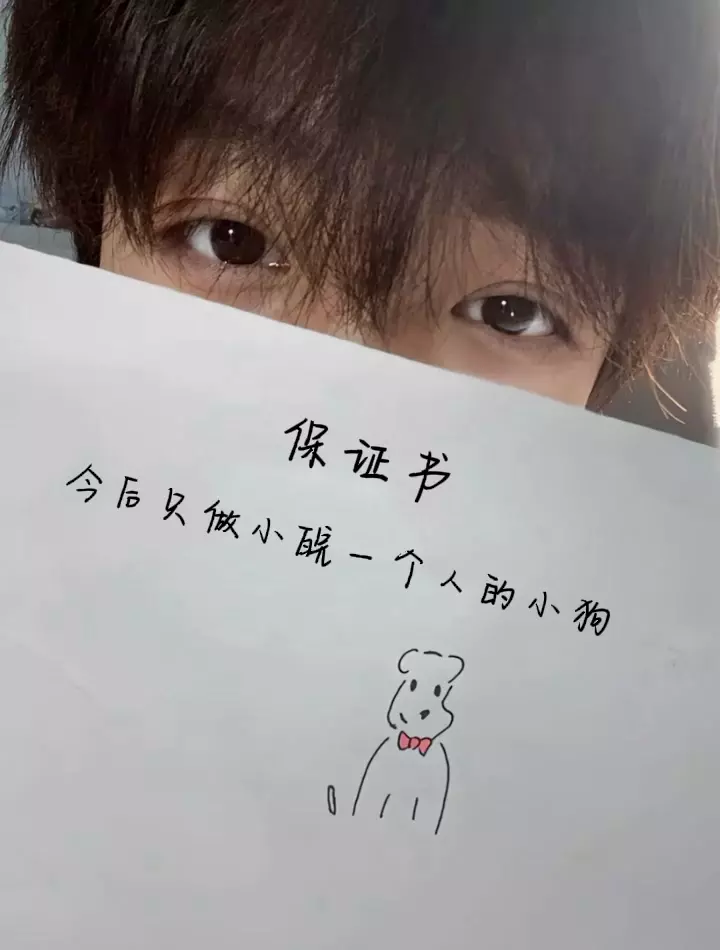 保证书
今后只做小皖一个人的小狗